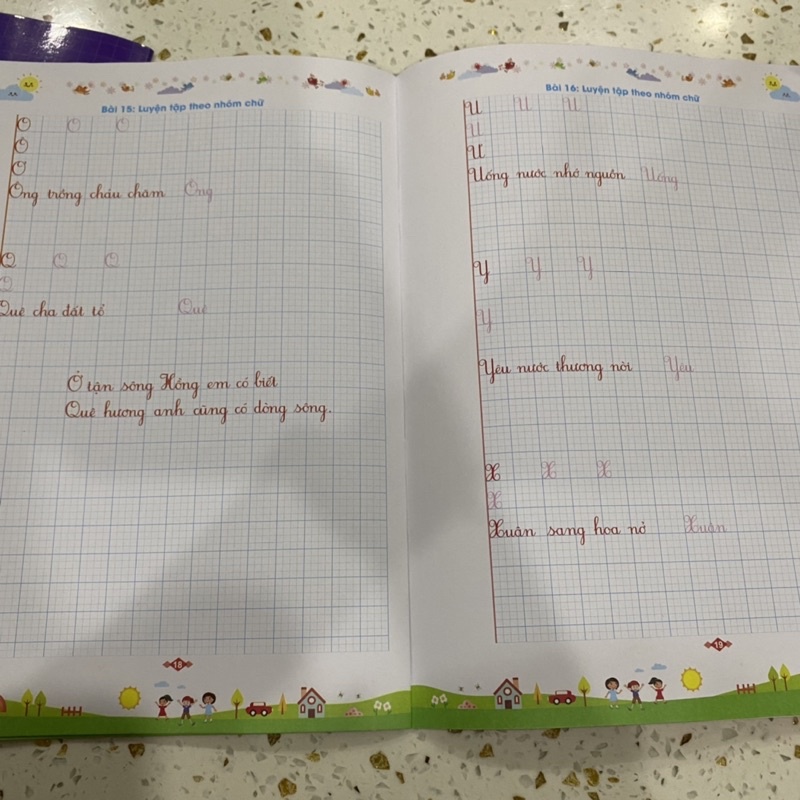 Bài 15: Luyện tập theo nhóm chữ
O O O
O
O
Ông trồng cháu chăm Ông
Q Q Q
Q
Quê cha đất tổ Quê
Ở tận sông Hồng em có biết
Quê hương anh cũng có dòng sông.
18
Bài 16: Luyện tập theo nhóm chữ
U U U
U
U
Uống nước nhớ nguồn Uống
Y Y Y
Y
Yêu nước thương nòi Yêu
X X X
X
Xuân sang hoa nở Xuân
19